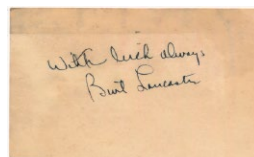 With luck always
Burt Lancaster